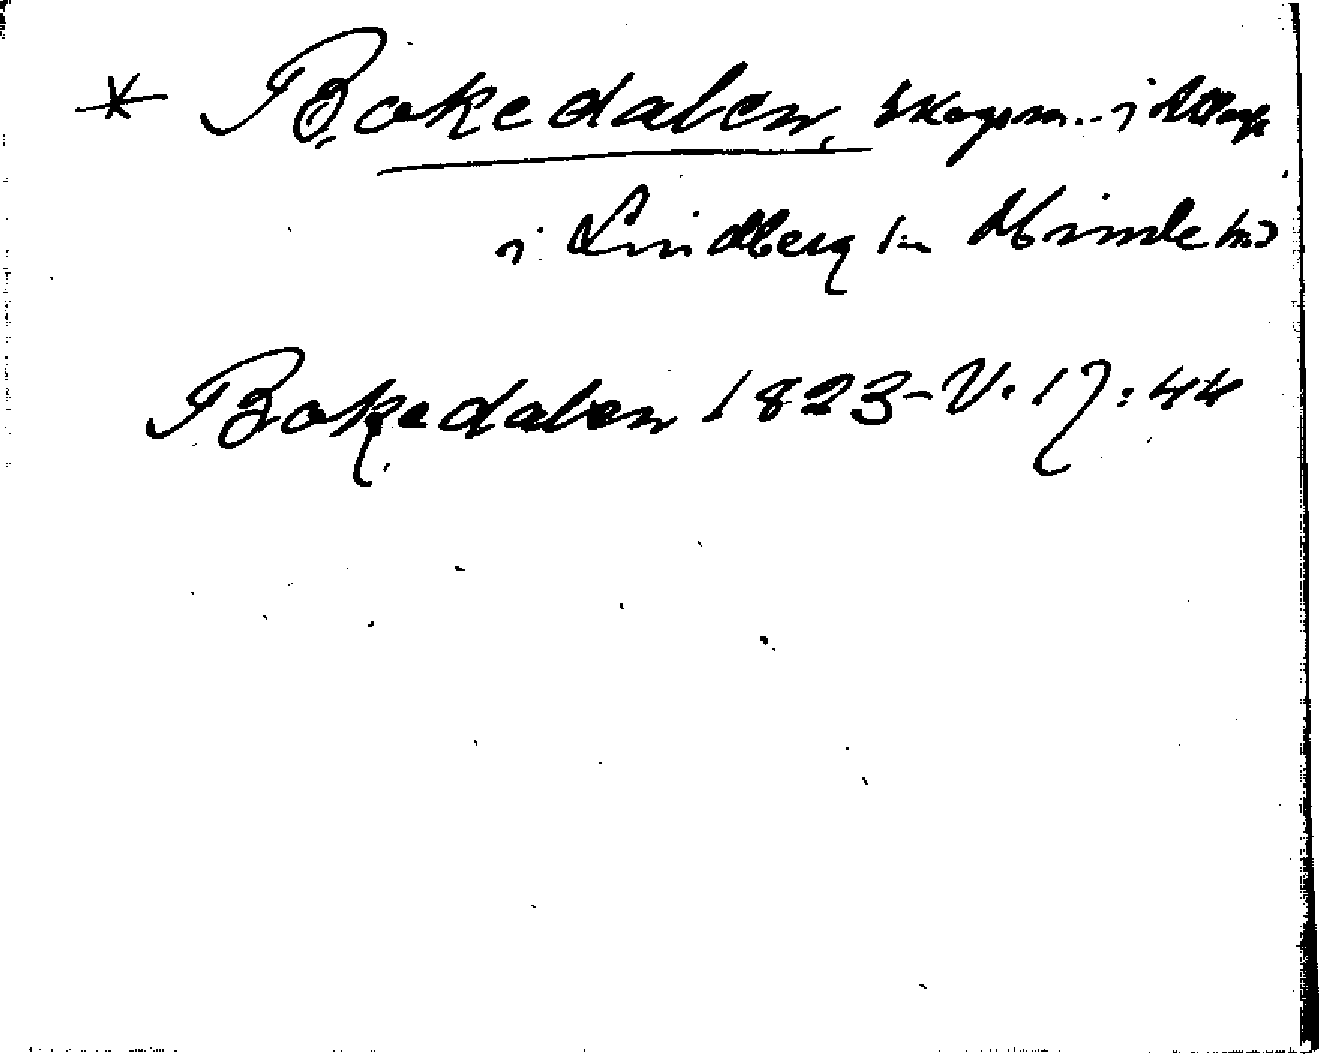 * Bokedalen, skogsm. i
i Lindberg sn Himle hd
Bokedalen 1823-V. 17:44